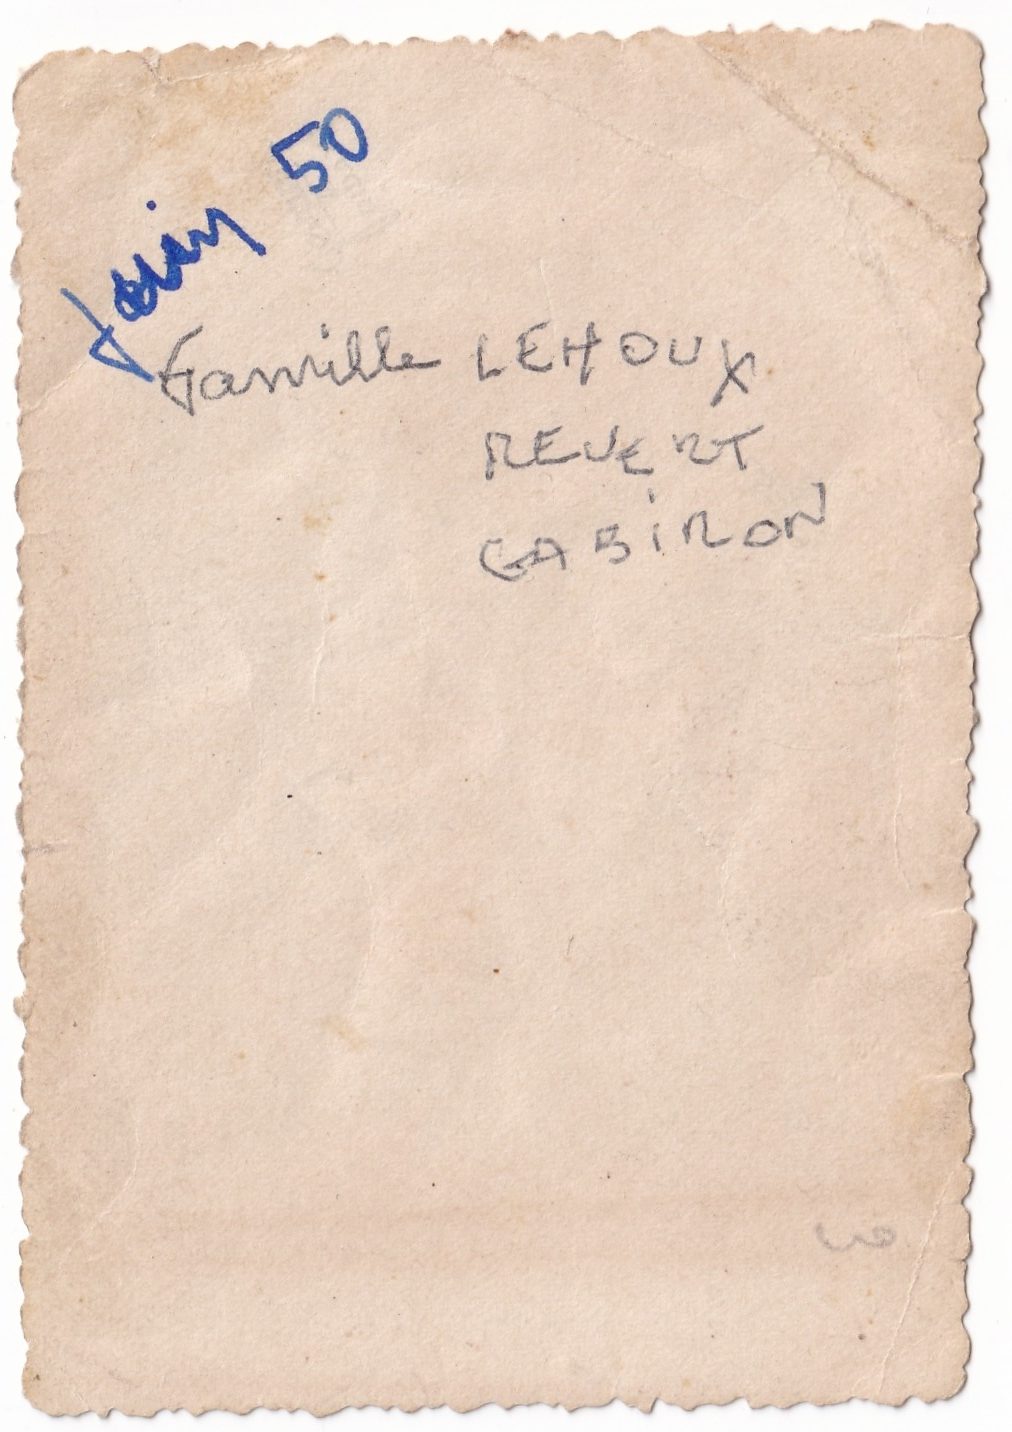 Juin 50
Famille LEHOUX
REVERT
GABiRON